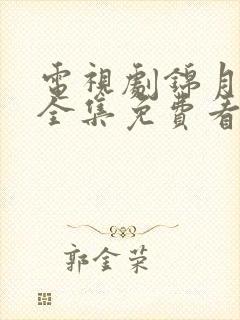 電視劇錦月
全集免費看
郭金荣